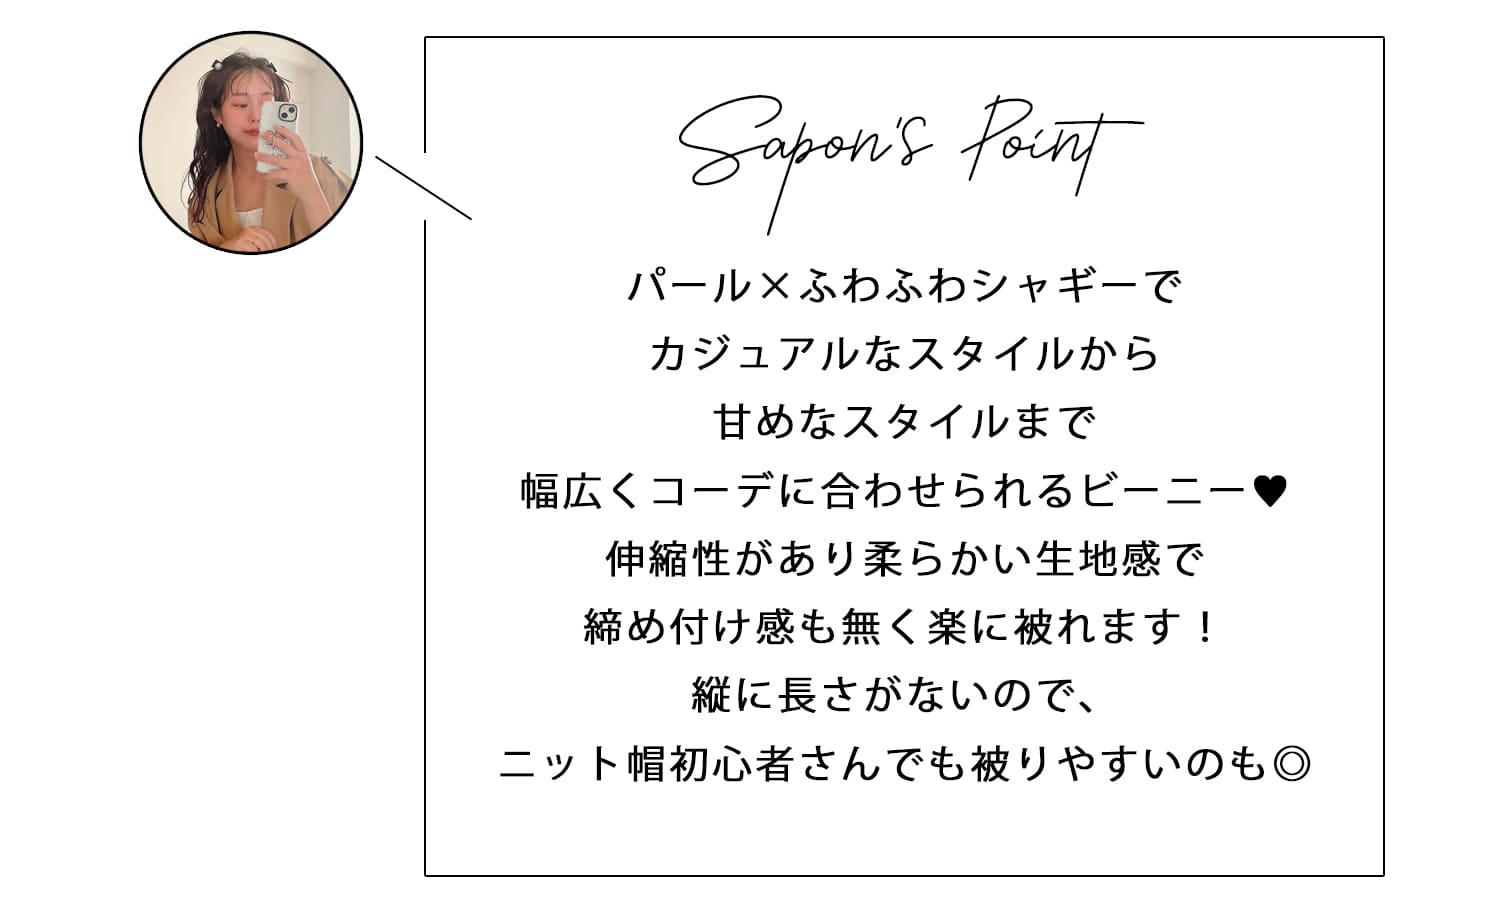 Sapon's Point
パール×ふわふわシャギーで
カジュアルなスタイルから
甘めなスタイルまで
幅広くコーデに合わせられるビーニー♥
伸縮性があり柔らかい生地感で
締め付け感も無く楽に被れます！
縦に長さがないので、
ニット帽初心者さんでも被りやすいのも◎